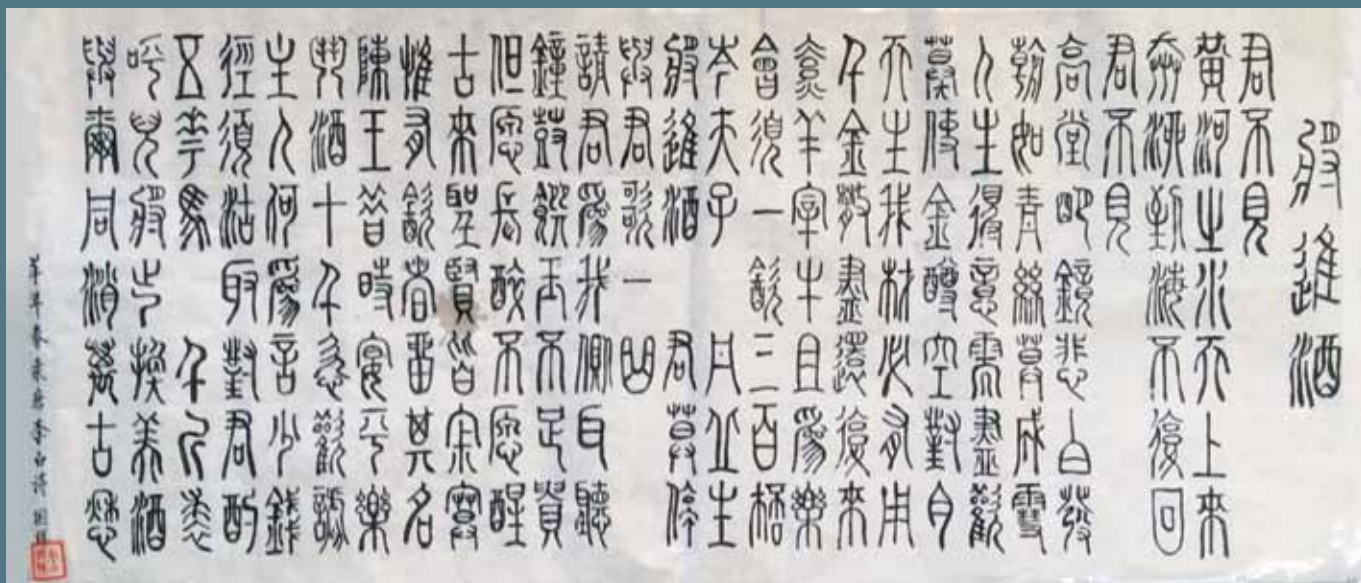 將進酒
君不見
黃河之水天上來
奔流到海不復回
君不見
高堂明鏡悲白髮
朝如青絲暮成雪
人生得意須盡歡
莫使金樽空對月
天生我材必有用
千金散盡還復來
烹羊宰牛且爲樂
會須一飲三百杯
岑夫子 丹丘生
將進酒 君莫停
與君歌一曲
請君爲我側耳聽
鐘鼓饌玉不足貴
但願長醉不願醒
古來聖賢皆寂寞
惟有飲者留其名
陳王昔時宴平樂
斗酒十千恣歡謔
主人何爲言少錢
徑須沽取對君酌
五花馬 千金裘
呼兒將出換美酒
與爾同消萬古愁
春录唐李白诗